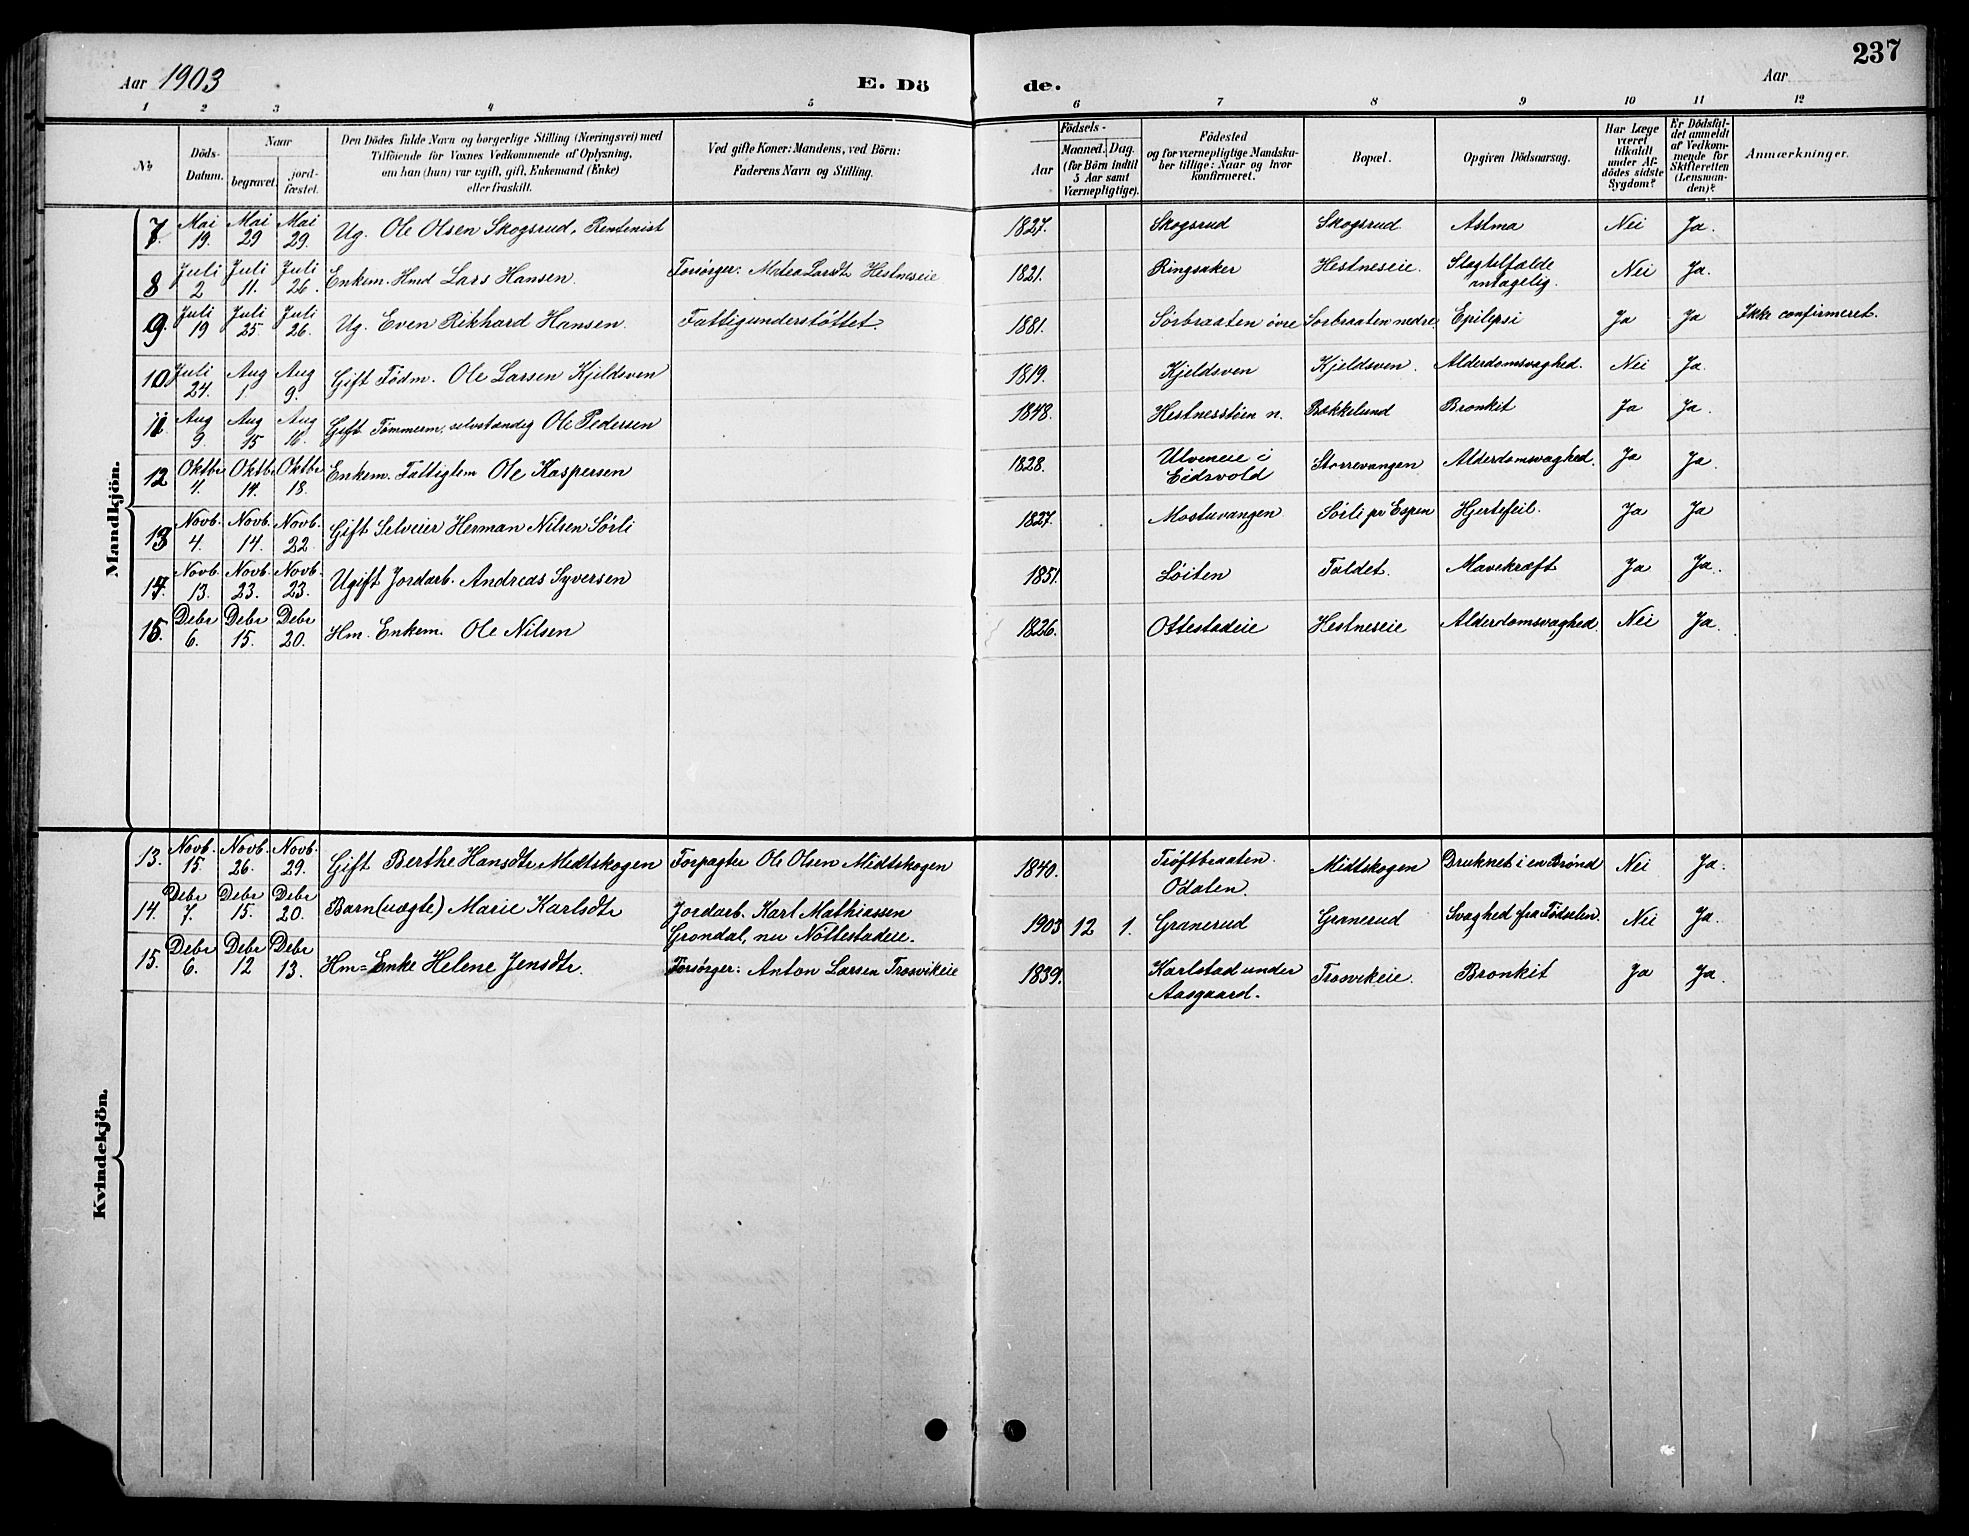 237
Aar 1903 E. Dö de. Aar
1 2 3 4 5 6 7 8 9 10 11 12
No.
Döds-Datum.
Naar
begravet.
jord-fæstet.
Den Dödes fulde Navn og borgerlige Stilling (Næringsvei) med
Tilföiende for Voxnes Vedkommende af Oplysning,
om han (hun) var ugift, gift, Enkemand (Enke)
eller fraskilt.
Ved gifte Koner: Mandens, ved Börn:
Faderens Navn og Stilling.
Födsels-
Aar
Maaned. Dag.
(for Börn indtil
5 Aar samt
Værnepligtige).
Födested
og for værnepligtige Mandska-
ber tillige: Naar og hvor
konfirmeret.
Bopæl.
Opgiven Dödsaarsag.
Har Læge
været
tilkaldt
under Af-
dödes sidste
Sygdom?
Er Dödsfal-
det anmeldt
af Vedkom-
mende for
Skifteretten
(Lensman-
den)?
Anmærkninger.
Mandkjön.
7. Mai 19. Mai 29 Mai 29. Ug. Ole Olsen Skogsrud, Rentenist 1827. Skogsrud Skogsrud Astma Nei Ja.
8 Juli 2 Juli 11. Juli 26. Enkem. Hmd Lars Hansen. Forsörger: Matea Larsdtr Hestneseie 1821. Ringsaker Hestneseie. Slagtilfælde antagelig. Nei Ja.
9. Juli 19 Juli 25 Juli 26. Ug. Even Rikhard Hansen. Fattigunderstøttet. 1881. Sörbraaten övre Sorbraaten nedre Epilepsi Ja Ja Ikke confirmeret.
10 Juli 24. Aug 1. Aug 9. Gift Födm. Ole Larsen Kjeldsven 1819. Kjeldsven Kjeldsven. Alderdomsvaghed. Nei Ja.
11. Aug 9. Aug 15 Aug 16. Gift Tömmerm. selvstændig Ole Pedersen 1848. Hestnesstöen n. Bækkelund Bronkit Ja Ja.
12 Oktbr 4. Oktbr 14. Oktbr 18. Enkem. Fattiglem Ole Kaspersen 1828. Ulveneie i Eidsvold Storrevangen Alderdomsvaghed. Ja Ja.
13 Novb. 4. Novb. 14. Novb. 22 Gift Selveier Herman Nilsen Sörli 1827. Mostuvangen Sörli pr Espen Hjertefeil. Ja Ja
14. Novb. 13. Novb. 23. Novb. 23. Ugift Jordarb. Andreas Syversen 1851. Löiten Faldet. Mavekræft Ja Ja.
15 Debr 6. Debr 15. Debr 20. Hm. Enkem. Ole Nilsen 1826. Ottestadeie Hestneseie Alderdomsvaghed. Nei Ja.
Kvindekjön.
13. Novb. 15. Novb. 26. Novb. 29. Gift Berthe Hansdtr Midtskogen Forpagter Ole Olsen Midtskogen 1840. Tröftbraaten. Odalen. Midtskogen Druknet i en Brönd Nei Ja.
14. Debr 7. Debr 15. Debr 20. Barn (uægte) Marie Karlsdtr Jordarb. Karl Mathiassen Grondal, nu Nöttestadeie. 1903 12 1. Granerud Granerud Svaghed fra Födselen. Nei Ja.
15. Debr 6. Debr 12 Debr 13. Hm= Enke Helene Jensdtr. Forsörger: Anton Larsen Trosvikeie 1839. Karlstad under Aasgaard. Trosvikeie. Bronkit Ja Ja.